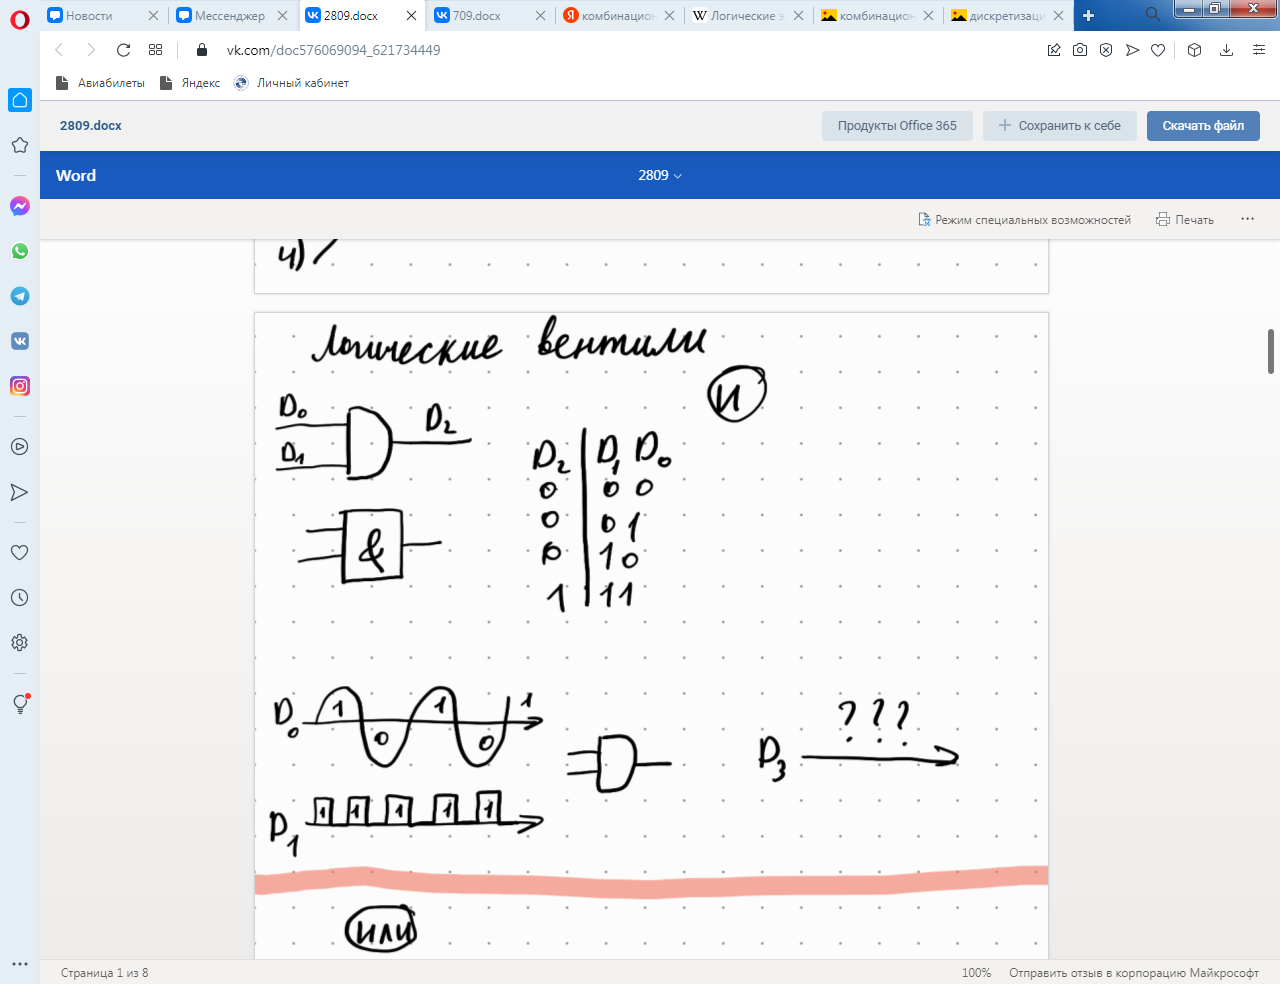 Новости
Мессенджер
2809.docx
709.docx
комбинацион
Логические э
комбинацион
дискретизаци
vk.com/doc576069094_621734449
Авиабилеты
Яндекс
Личный кабинет
2809.docx
Продукты Office 365
Сохранить к себе
Скачать файл
Word
2809
Режим специальных возможностей
Печать
4)
Логические вентили
И
D0
D1
D2
&
D2 | D1 D0
0 | 0 0
0 | 0 1
0 | 1 0
1 | 1 1
D0 1 0 1 0 1
D3 ? ? ?
D1 1 1 1 1 1
или
Страница 1 из 8
100%
Отправить отзыв в корпорацию Майкрософт